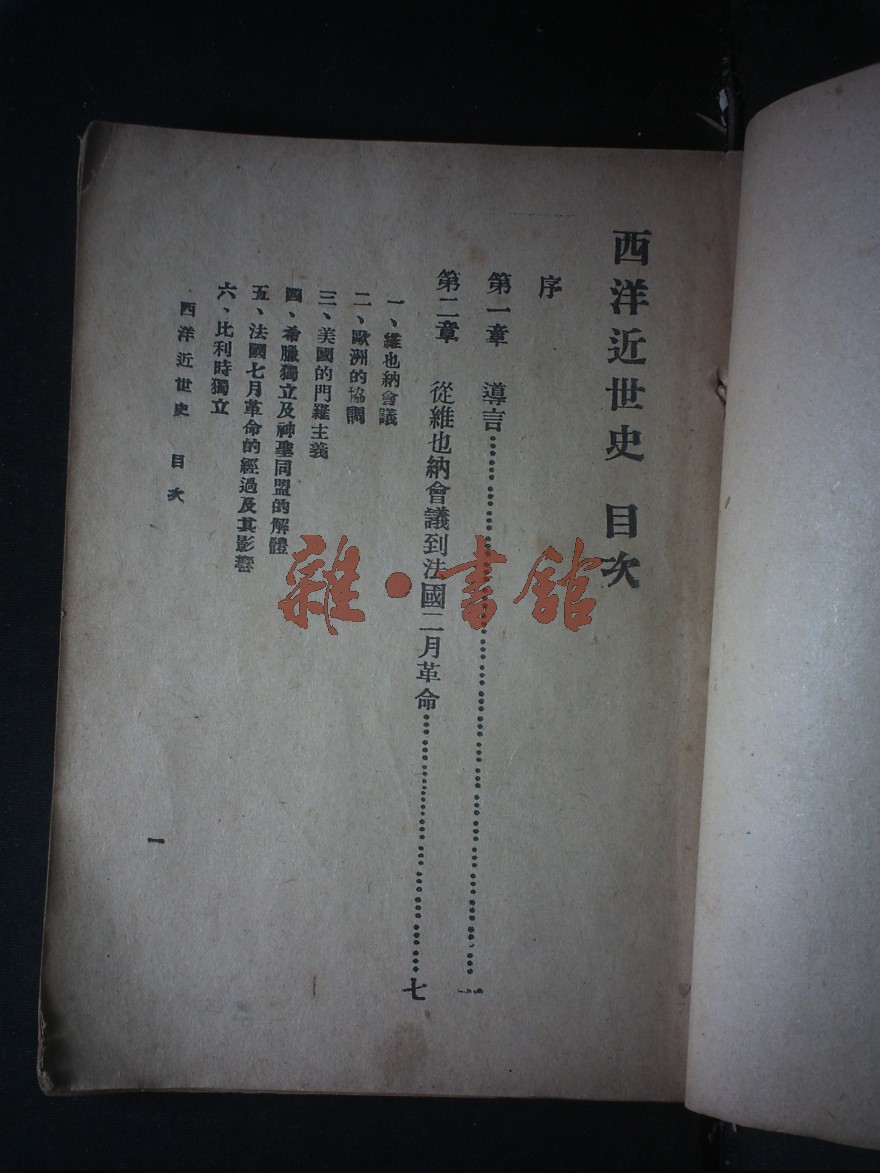 西洋近世史 目次
序
第一章 導言……一
第二章 從維也納會議到法國二月革命……七
一、維也納會議
二、歐洲的協調
三、美國的門羅主義
四、希臘獨立及神聖同盟的解體
五、法國七月革命的經過及其影響
六、比利時獨立
西洋近世史 目次
一
雜·書館